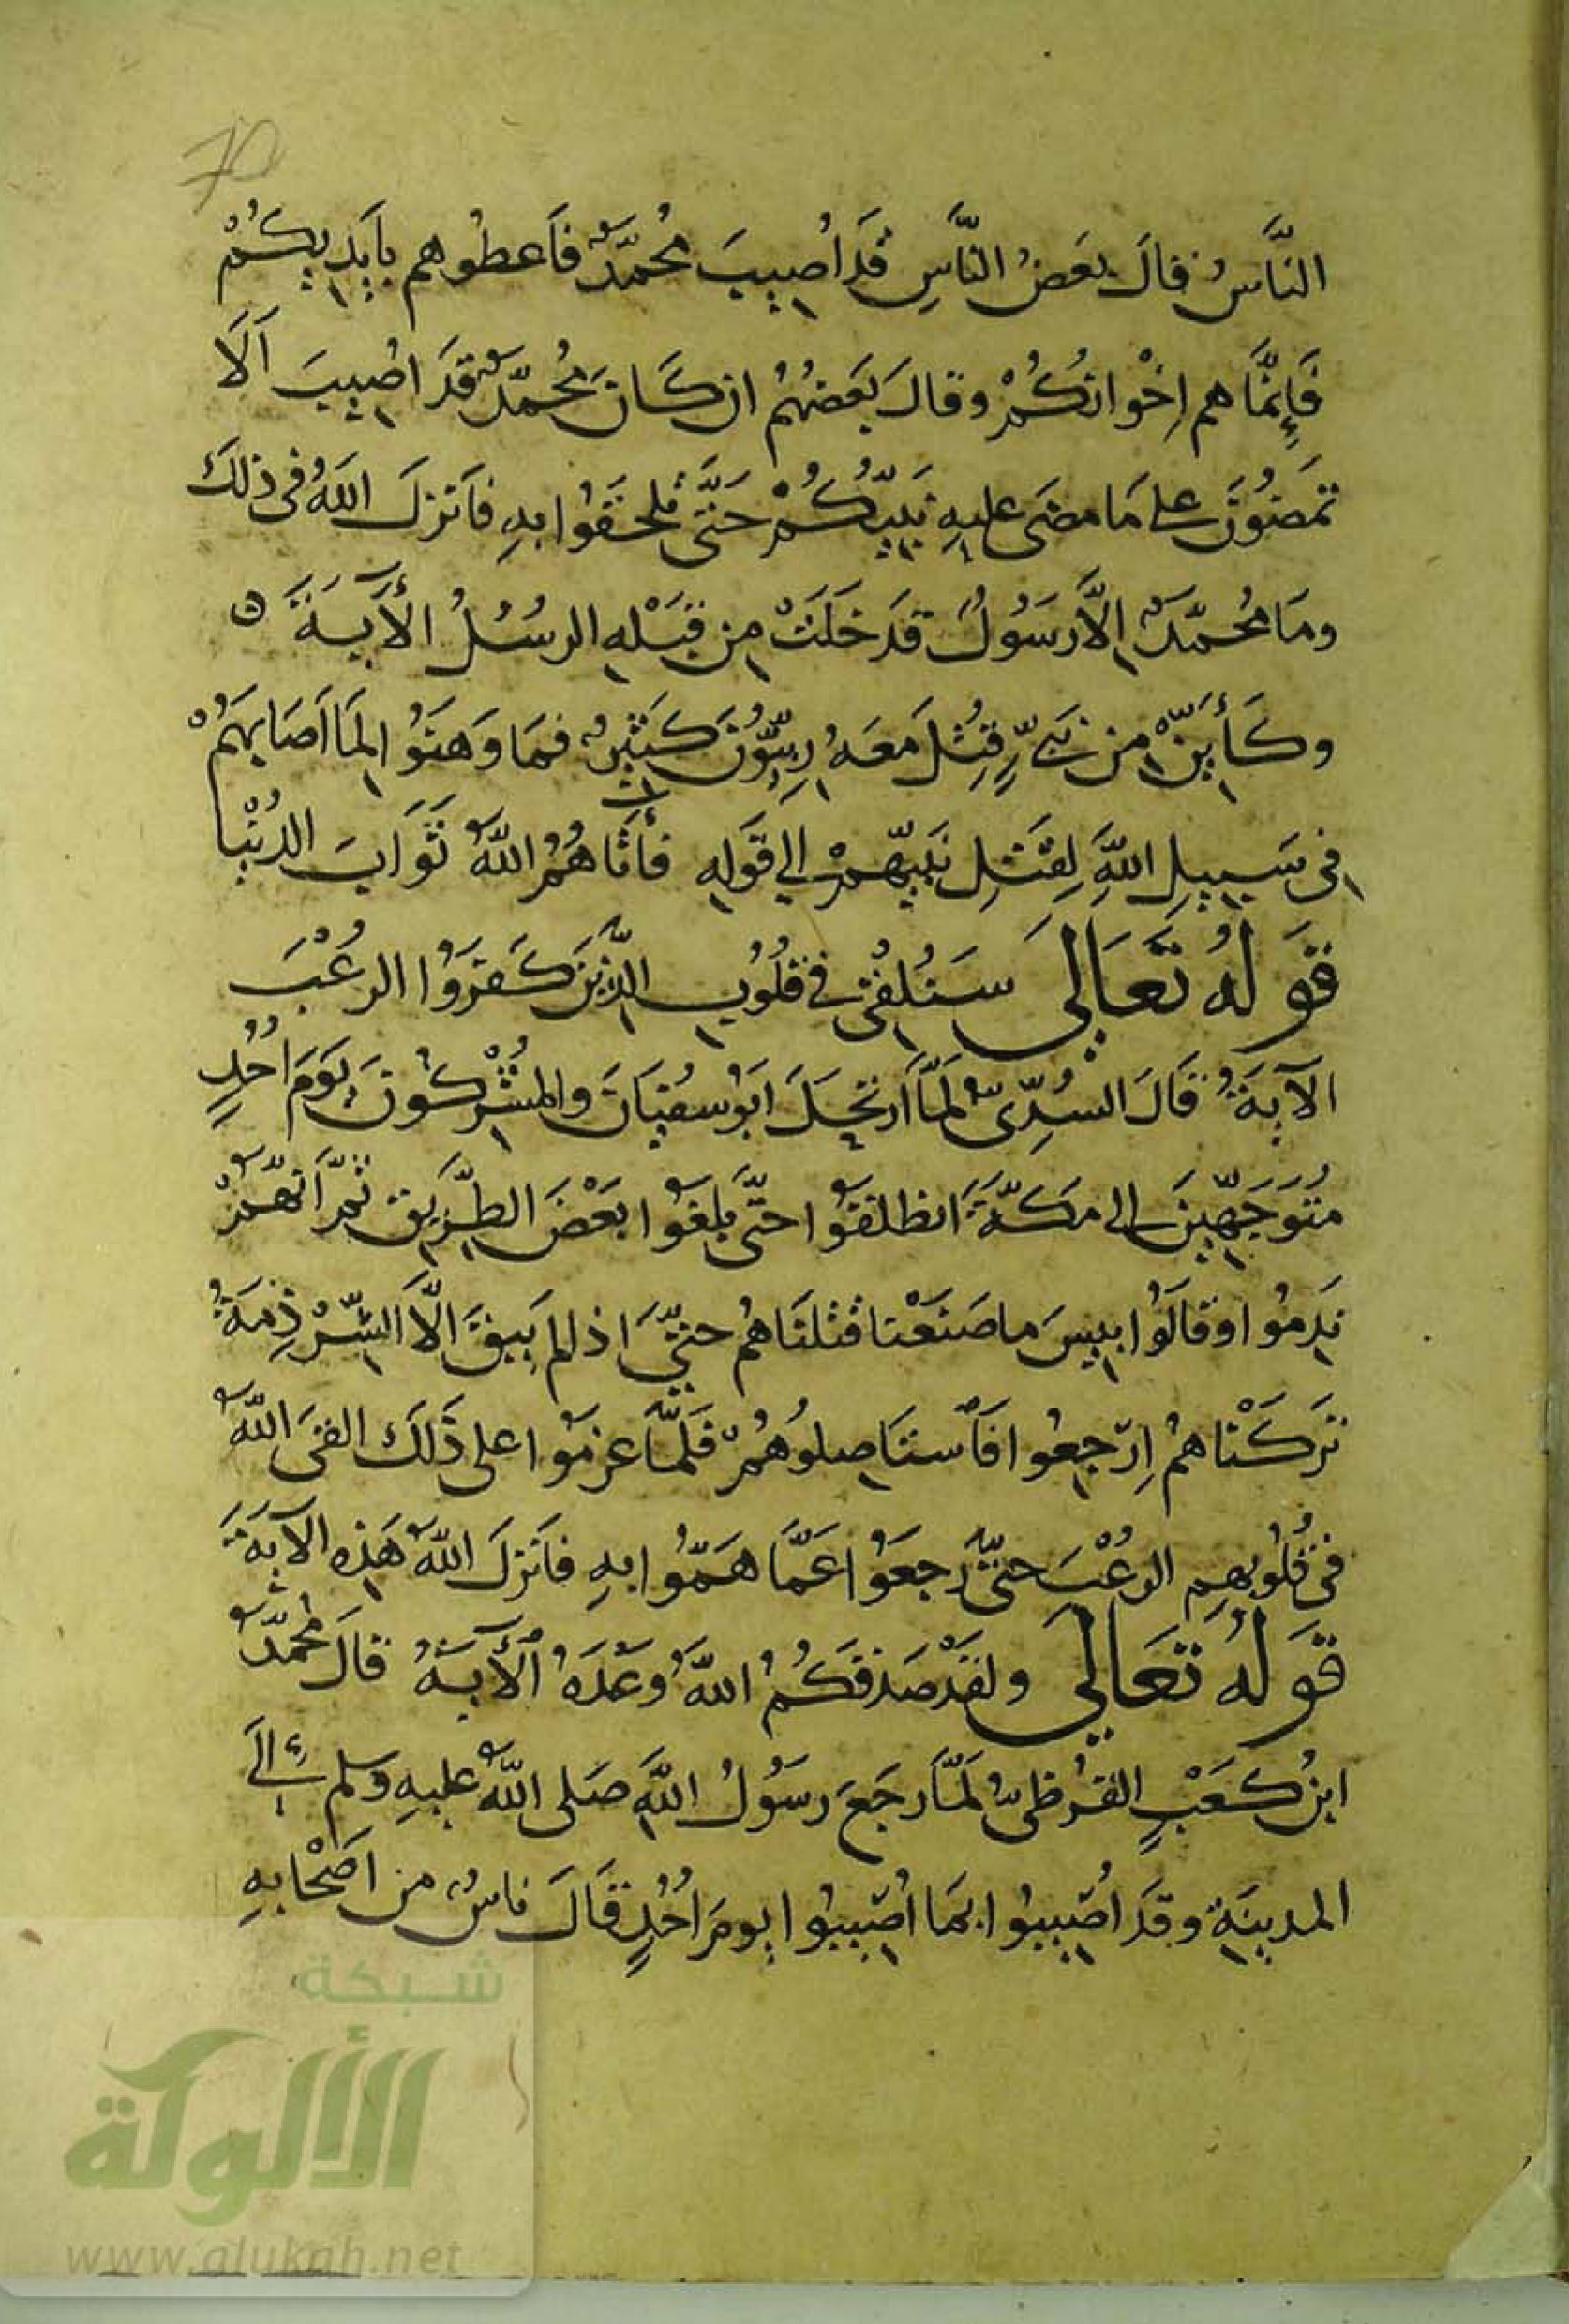 70
النَّاسُ فقالَ بعَضُ النَّاسِ قَد اُصيبَ مُحمَّدٌ فَاَعطُوهم بأيَديكُمْ
فَإِنمَّا هم اِخْوانكُمْ وقالَ بَعضُهُمْ ان كَانَ مُحمَّدٌ قَدَ اصُيبَ اَلَا
تمَضُونَ على مَا مضَى عليهِ نَبيّكُمْ حَتَّى تلحقَوُا بهِ فاَنزلَ اللهُ فى ذلكَ
ومَا مُحمَّدٌ اِلَّا رَسَوُلٌ قدَ خَلَتْ مِن قبَلْهِ الرسُلُ الأَيَةَ ه
وكَأَيّنْ من نَبىٍّ قُتِلَ مَعَهُ رِبيّوُنَ كَثيرٌ فمَا وَهَنَوُا لمَا اَصَابهَمُْ
فى سَبيلِ اللهِ لِقتَلِ نَبيّهمْ الى قوَلهِ فأتَاهُمُ اللهُ ثَوَابَ الدُنْيا
قوَلهُ تعَالى سَنُلقْى فى قلُوُبِ الذّينَ كَفروَا الرعُبْ
الآيةَُ قَالَ السُدِّىّ لمَّا ارتحَلَ ابَوُ سفُيَانَ والمشُرْكُونَ يوَمَ اُحُدٍ
مُتَوَجّهينَ الى مَكةَّ انطلقوَا حتىَّ بلغَوا بعَضْ الطرّيَق ثمُّ اَنهّمْ
نَدِمُوا وقالَوُا بيسَ ما صَنعَنْا قتلنَاهُم حتىَّ اذا لم يَبقَ اِلَّا الشّرْذِمَةُ
ترَكَنْاهُمُ اِرجعِوُا فَاَستاصلِوُهُمْ فَلمَّا عزموَُا على ذَلَك القىَ اللهُ
فى قُلوُبهِم الرعُبْ حتىَّ رَجعَوُا عَمَّا هَمّوُا بهِ فاَنزلَ اللهُ هَذِه الآيةََ
قوَلهُ تعَالى ولقَدْ صَدَقكُمُ اللهُ وَعَدَهُ الآَيةَُ قالَ محُمّدُ
ابنُ كَعَبٍ القُرظىُّ لمَّا رجَعَ رسَوُلُ اللهِ صَلى اللهُ عليهِ وَسلم الىَ
المدينةَِ وقَدَ اصُيبوُا بما اُصيبوُا يومَ اُحُدٍ قَالَ ناسٌ من اَصَحْابهِ
شبكة
الألوكة
www.alukah.net